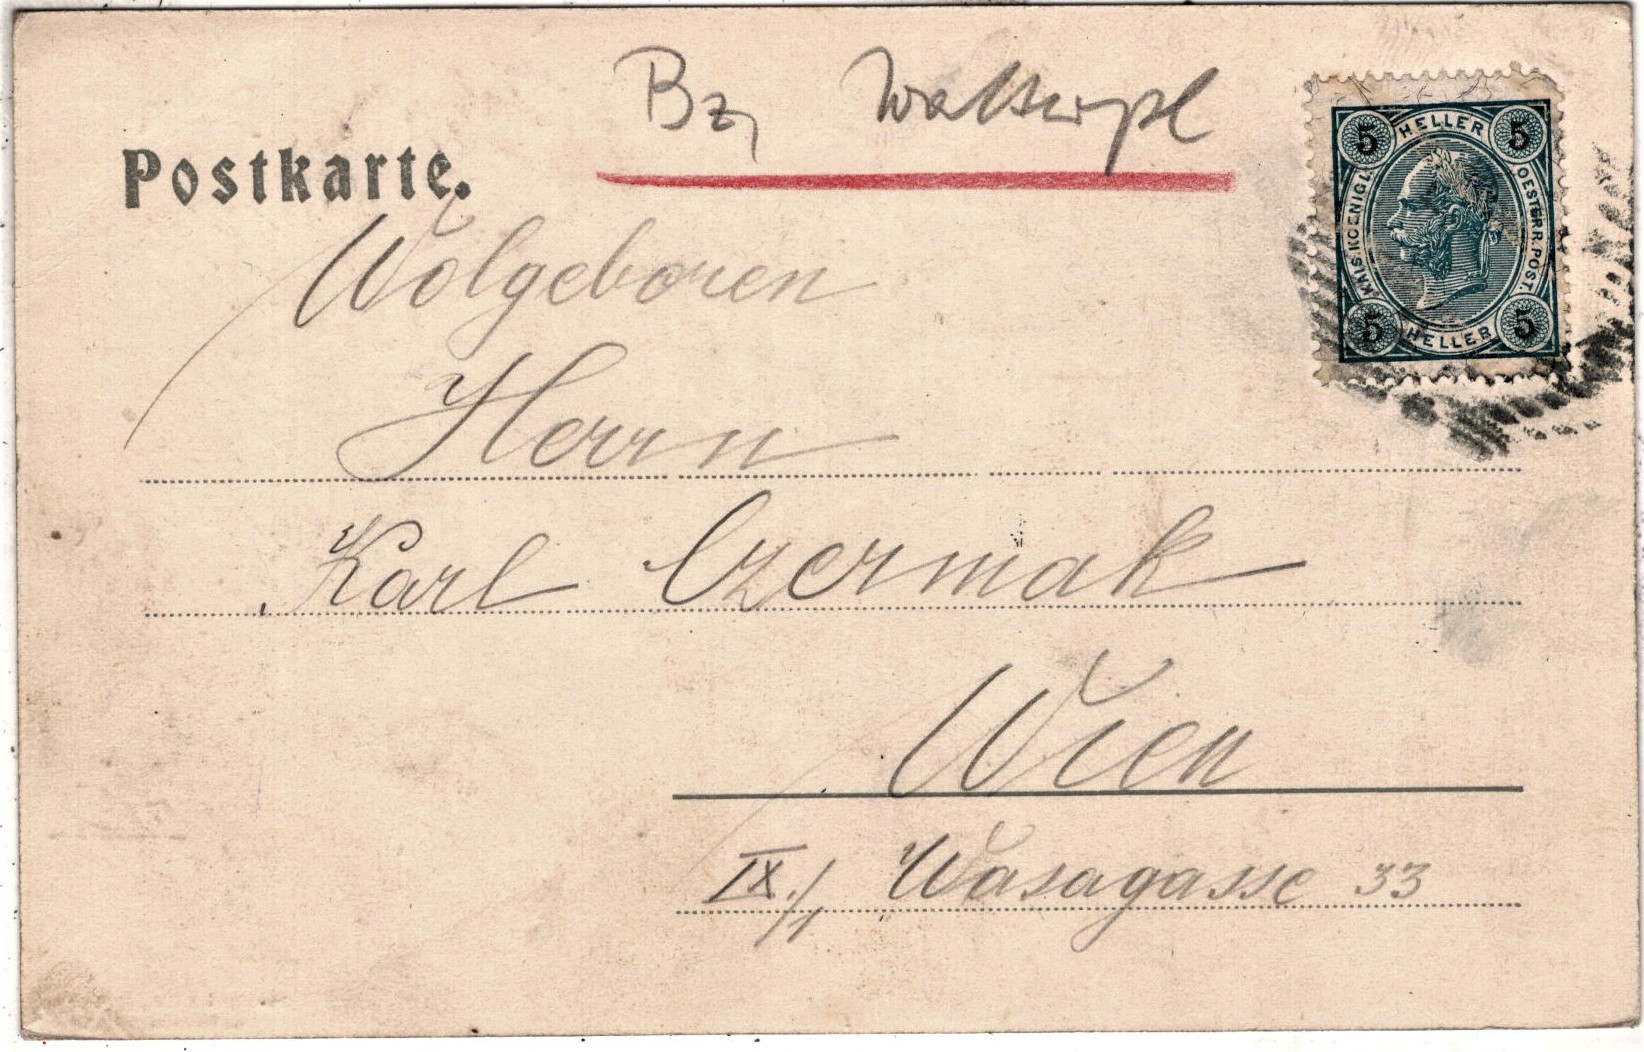 Bz, Waltherpl
Postkarte.
5 HELLER 5
KAIS. KOENIGL. OESTERR. POST.
5 HELLER 5
Wolgeboren
Herrn
Karl Czermak
Wien
IX./1 Wasagasse 33